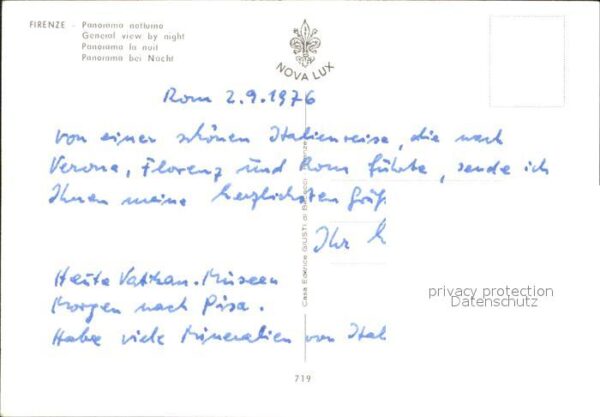 FIRENZE - Panorama notturno
General view by night
Panorama la nuit
Panorama bei Nacht
NOVA LUX
Rom 2.9.1976
von einer schönen Italienreise, die nach
Verona, Florenz und Rom führte, sende ich
Ihnen meine herzlichsten Grüß
Ihr
Heute Vatikan-Museen
Morgen nach Pisa.
Habe viele Mineralien von Ital
Casa Editrice GIUSTI di
privacy protection
Datenschutz
719